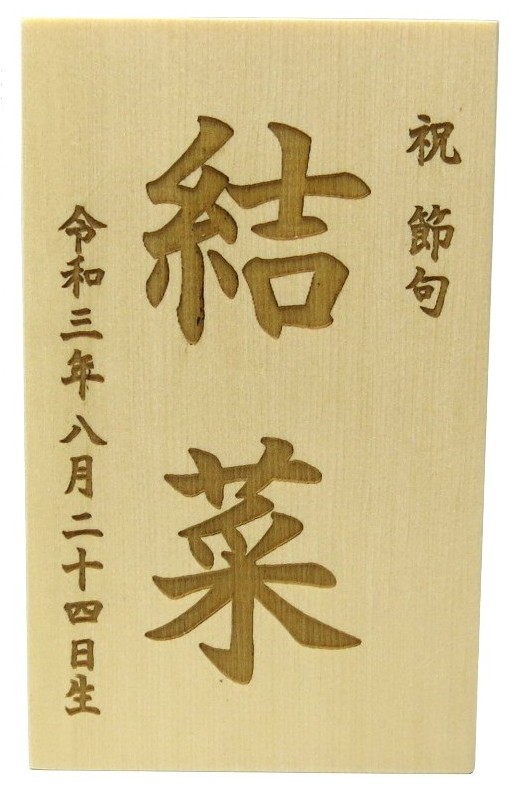 祝 節句
結菜
令和三年八月二十四日生